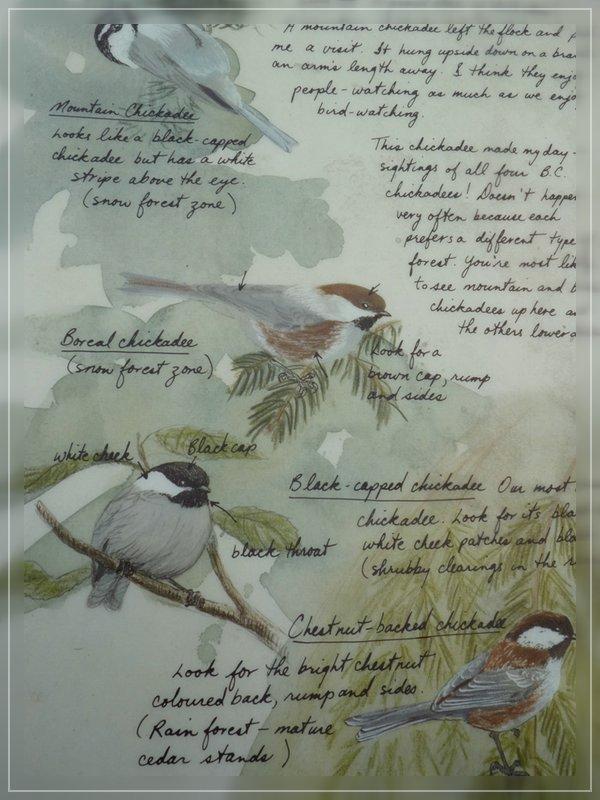 A mountain chickadee left the flock and
me a visit. It hung upside down on a
an arm's length away. I think they
people-watching as much as we
bird-watching.
Mountain Chickadee
Looks like a black-capped
chickadee but has a white
stripe above the eye.
(snow forest zone)
This chickadee made my day-
sightings of all four B.C.
chickadees! Doesn't
very often because each
prefers a different type
forest. You're most
to see mountain and
chickadees up here
the others lower
Boreal chickadee
(snow forest zone)
Look for a
brown cap, rump
and sides
white cheek
Black cap
black throat
Black-capped chickadee Our most
chickadee. Look for its
white cheek patches and
(shrubby clearings in the
Chestnut-backed chickadee
Look for the bright chestnut
coloured back, rump and sides.
(Rain forest - mature
cedar stands)